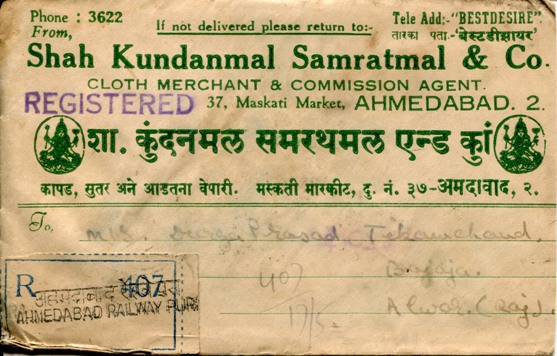 Phone : 3622
If not delivered please return to:-
Tele Add:-"BESTDESIRE"
From,
तारका पता.-'बेस्टडीझायर'
Shah Kundanmal Samratmal & Co.
CLOTH MERCHANT & COMMISSION AGENT.
REGISTERED
37, Maskati Market, AHMEDABAD. 2.
शा. कुंदनमल समरथमल एन्ड कुां
कापड, सुतर अने आडतना वेपारी. मस्कती मारकीट, दु. नं. ३७-अमदावाद, २.
To,
M/S. Durga Prasad Tikamchand
Bajaja.
Alwar. (Raj).
R 407
अहमदाबाद
AHMEDABAD RAILWAY PURA
407